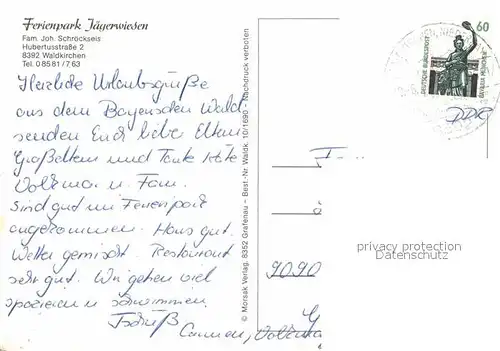 Ferienpark Jägerwiesen
Fam. Joh. Schröckseis
Hubertusstraße 2
8392 Waldkirchen
Tel. 0 85 81 / 7 63
Herzliche Urlaubsgrüße
aus dem Bayerschen Wald
senden Euch liebe Eltern
Großeltern und Tante Käte
Volkmar u. Fam.
Sind gut im Ferienpark
angekommen. Haus gut.
Wetter gemischt. Restaurant
sehr gut. Wir gehen viel
spazieren u. schwimmen.
Tschüß
Carmen, Volkmar
© Morsak Verlag, 8352 Grafenau – Best.-Nr. Waldk. 10/1690 Nachdruck verboten
60
DEUTSCHE BUNDESPOST
BAVARIA MÜNCHEN
DDR
9090
privacy protection
Datenschutz